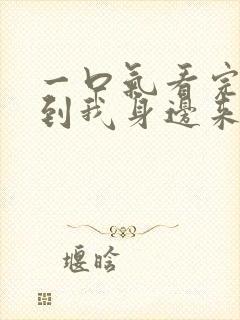 一口氣看完
到我身邊來
堰晗